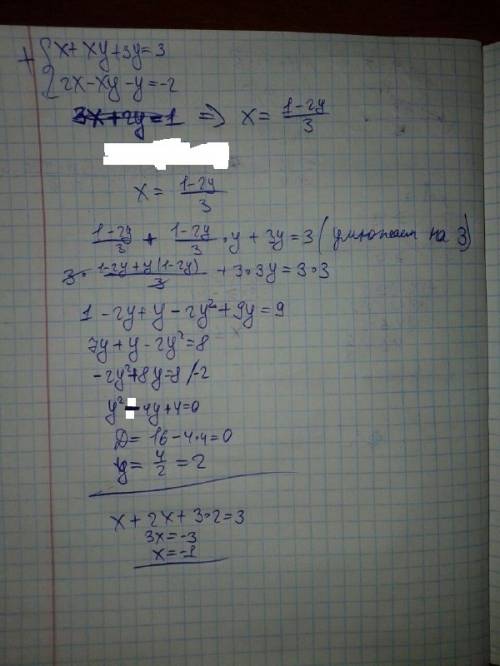 + { x + xy + 3y = 3
2x - xy - y = -2
3x + 2y = 1 => x = (1-2y)/3
x = (1-2y)/3
(1-2y)/3 + (1-2y)/3 · y + 3y = 3 (умножаем на 3)
3 · (1-2y+y(1-2y))/3 + 3·3y = 3·3
1 - 2y + y - 2y² + 9y = 9
7y + y - 2y² = 8
-2y² + 8y = 8 /-2
y² - 4y + 4 = 0
D = 16 - 4·4 = 0
y = 4/2 = 2
x + 2x + 3·2 = 3
3x = -3
x = -1